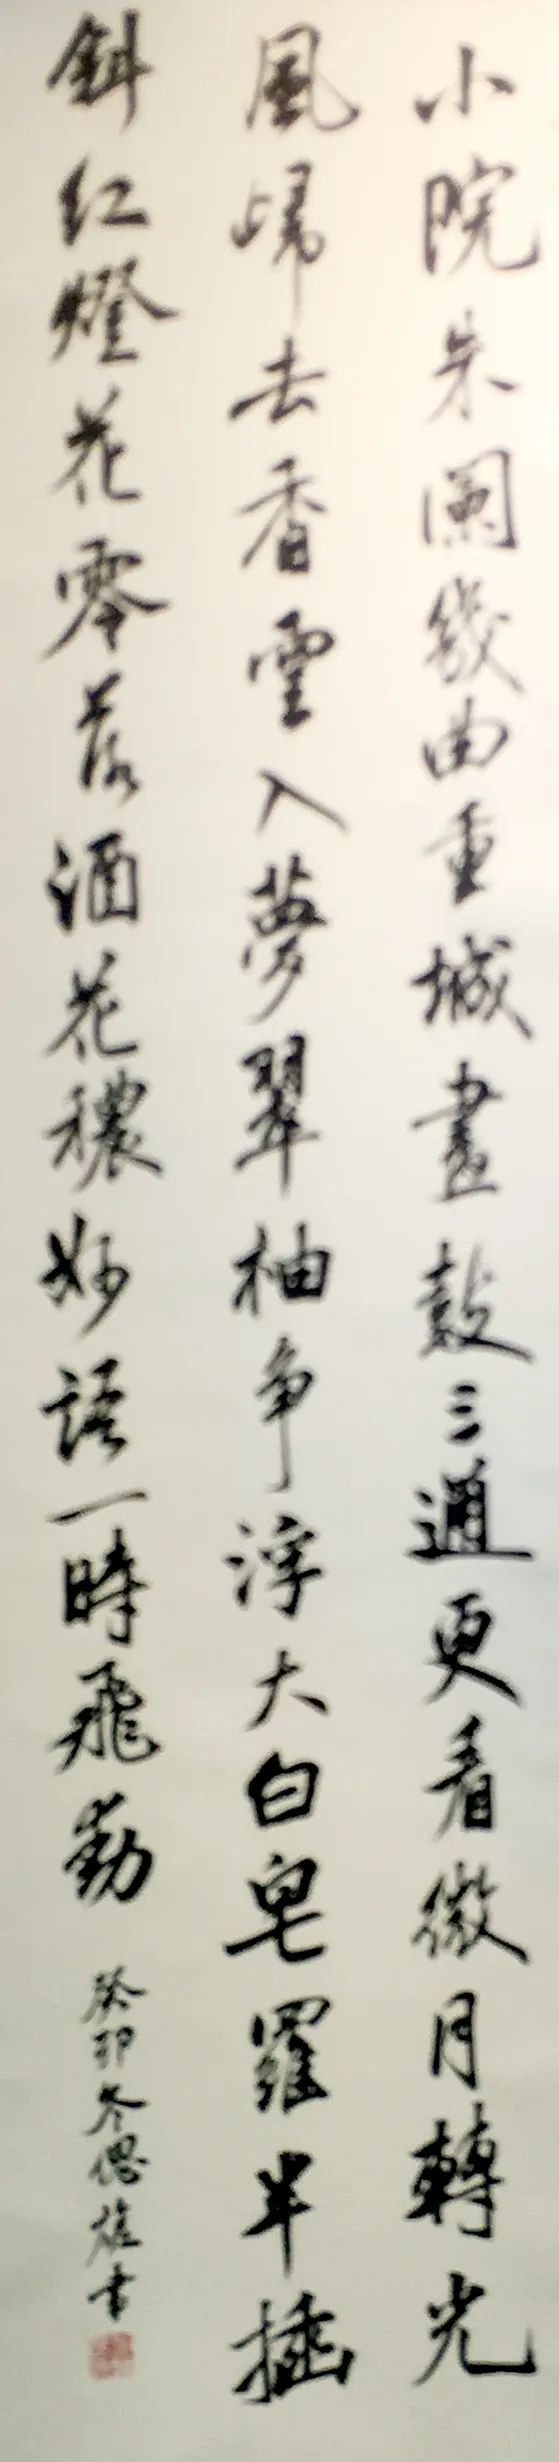 小院朱闌幾曲重城畫鼓三通更看微月轉光
風歸去香雲入夢翠袖争浮大白皂羅半插
斜红燈花零落酒花穠妙語一時飛動
癸卯冬偲书